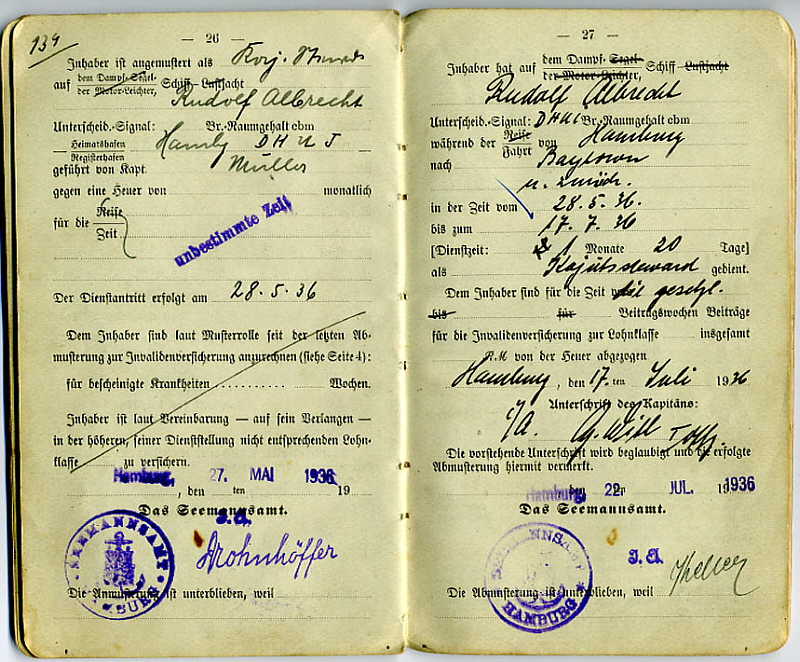 139
— 26 —
Inhaber ist angemustert als Kaj. Steward
auf dem Dampf-Segel-
der Motor-Leichter, Schiff Lustjacht
Rudolf Albrecht
Unterscheid.-Signal: Br.-Raumgehalt cbm
Heimatshafen
Registerhafen Hambg DHUJ
geführt von Kapt. Müller
gegen eine Heuer von monatlich
für die Reise
Zeit
unbestimmte Zeit
Der Dienstantritt erfolgt am 28.5.36
Dem Inhaber sind laut Musterrolle seit der letzten Ab-
musterung zur Invalidenversicherung anzurechnen (siehe Seite 4):
für bescheinigte Krankheiten .......... Wochen.
Inhaber ist laut Vereinbarung — auf sein Verlangen —
in der höheren, seiner Dienststellung nicht entsprechenden Lohn-
klasse zu versichern.
Hamburg, den 27. MAI ten 1936 19
Das Seemannsamt.
I. A.
SEEMANNSAMT
Die Anmusterung ist unterblieben, weil
— 27 —
Inhaber hat auf dem Dampf-Segel-
der Motor-Leichter, Schiff Lustjacht
Rudolf Albrecht
Unterscheid.-Signal: DHUJ Br.-Raumgehalt cbm
während der Reise
Fahrt von Hamburg
nach Baytown
u. zurück.
in der Zeit vom 28.5.36.
bis zum 17.7.36
[Dienstzeit: 1 Monate 20 Tage]
als Kajütssteward gedient.
Dem Inhaber sind für die Zeit gesetzl.
bis für Beitragswochen Beiträge
für die Invalidenversicherung zur Lohnklasse insgesamt
RM von der Heuer abgezogen
Hamburg, den 17. ten Juli 1936
Unterschrift des Kapitäns:
I/A.
Die vorstehende Unterschrift wird beglaubigt und die erfolgte
Abmusterung hiermit vermerkt.
Hamburg, den 22. JUL. 1936
Das Seemannsamt.
I. A.
SEEMANNSAMT
HAMBURG
Die Abmusterung ist unterblieben, weil